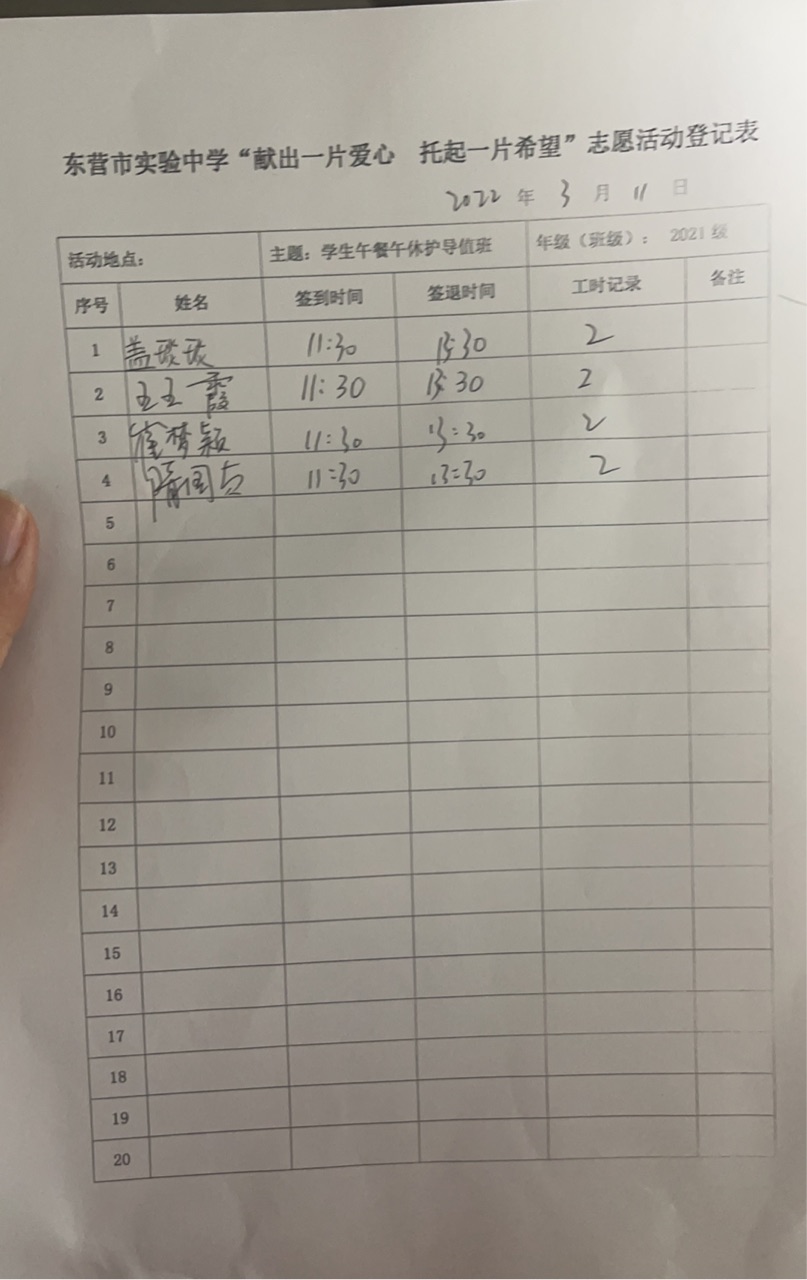 东营市实验中学“献出一片爱心 托起一片希望”志愿活动登记表
2022 年 3 月 11 日
活动地点： 主题：学生午餐午休护导值班 年级（班级）： 2021 级
序号 姓名 签到时间 签退时间 工时记录 备注
1 盖琰琰 11:30 13:30 2
2 王玉霞 11:30 13:30 2
3 崔梦颖 11:30 13:30 2
4 隋国 11:30 13:30 2
5
6
7
8
9
10
11
12
13
14
15
16
17
18
19
20